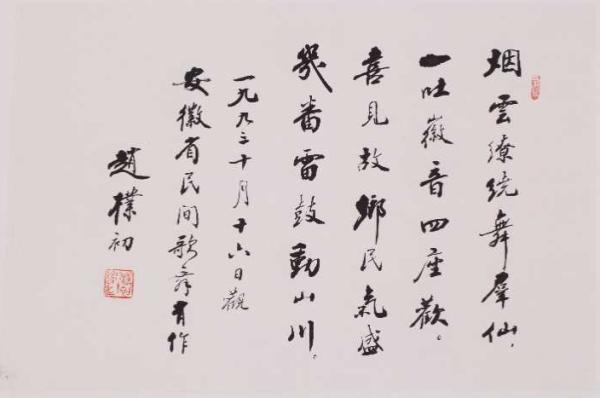 烟雲繚繞舞羣仙，
一吐徽音四座歡。
喜見故鄉民氣盛
幾番雷鼓動山川。
一九九三十月十六日觀
安徽省民间歌舞有作
趙樸初